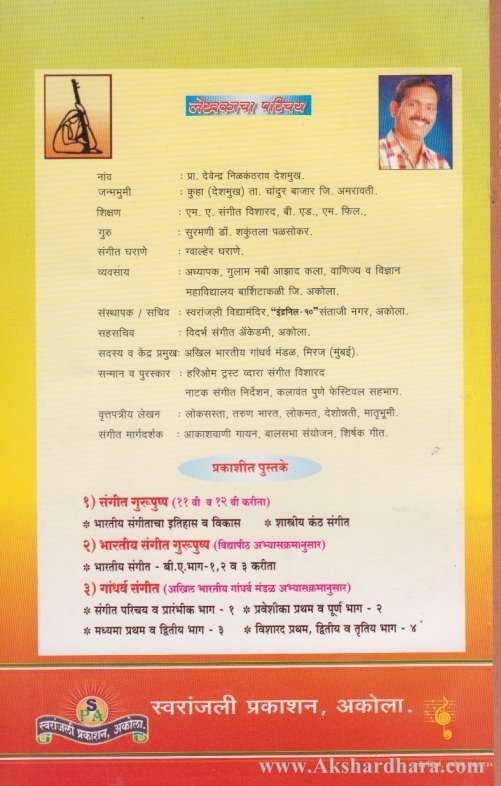 लेखकाचा परिचय
नांव : प्रा. देवेन्द्र निळकंठराव देशमुख.
जन्मभुमी : कुहा (देशमुख) ता. चांदुर बाजार जि. अमरावती.
शिक्षण : एम. ए. संगीत विशारद, बी. एड., एम. फिल.,
गुरु : सुरमणी डॉ. शकुंतला पळसोकर.
संगीत घराणे : ग्वाल्हेर घराणे.
व्यवसाय : अध्यापक, गुलाम नबी आझाद कला, वाणिज्य व विज्ञान
महाविद्यालय बार्शिटाकळी जि. अकोला.
संस्थापक / सचिव : स्वरांजली विद्यामंदिर, "इंद्रनिल-१०" संताजी नगर, अकोला.
सहसचिव : विदर्भ संगीत ॲकेडमी, अकोला.
सदस्य व केंद्र प्रमुख: अखिल भारतीय गांधर्व मंडळ, मिरज (मुंबई).
सन्मान व पुरस्कार : हरिओम ट्रस्ट व्दारा संगीत विशारद
नाटक संगीत निर्देशन, कलावंत पुणे फेस्टिवल सहभाग.
वृत्तपत्रीय लेखन : लोकसत्ता, तरुण भारत, लोकमत, देशोन्नती, मातृभूमी.
संगीत मार्गदर्शक : आकाशवाणी गायन, बालसभा संयोजन, शिर्षक गीत.
प्रकाशीत पुस्तके
१) संगीत गुरुपुष्प (११ वी व १२ वी करीता)
* भारतीय संगीताचा इतिहास व विकास * शास्त्रीय कंठ संगीत
२) भारतीय संगीत गुरुपुष्प (विद्यापीठ अभ्यासक्रमानुसार)
* भारतीय संगीत - बी.ए.भाग-१,२ व ३ करीता
३) गांधर्व संगीत (अखिल भारतीय गांधर्व मंडळ अभ्यासक्रमानुसार)
* संगीत परिचय व प्रारंभीक भाग - १ * प्रवेशीका प्रथम व पूर्ण भाग - २
* मध्यमा प्रथम व द्वितीय भाग - ३ * विशारद प्रथम, द्वितीय व तृतिय भाग - ४
S
P A
स्वरांजली प्रकाशन, अकोला.
स्वरांजली प्रकाशन, अकोला.
www.Akshardhara.com